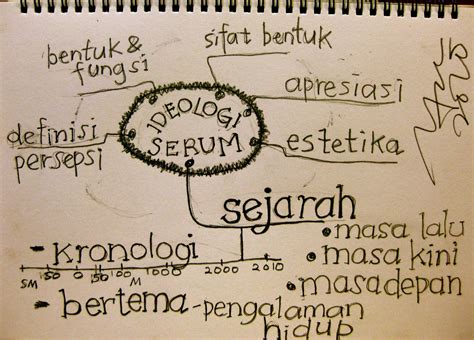 bentuk &
fungsi
sifat bentuk
apresiasi
definisi
persepsi
IDEOLOGI
SERUM
estetika
sejarah
• masa lalu
• masa kini
• masadepan
- kronologi
SM 150 0 150 100 M 1000 2000 2010
- bertema - pengalaman
hidup